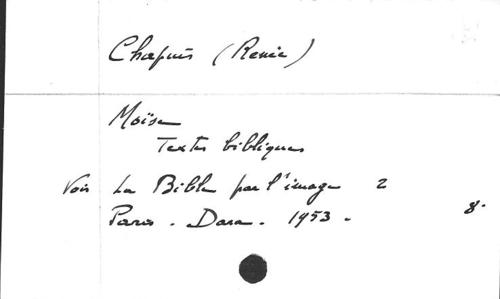 Chapuis (Renée)
Moïse
Textes bibliques
Voir La Bible par l'image 2
Paris. Dara. 1953.
8.